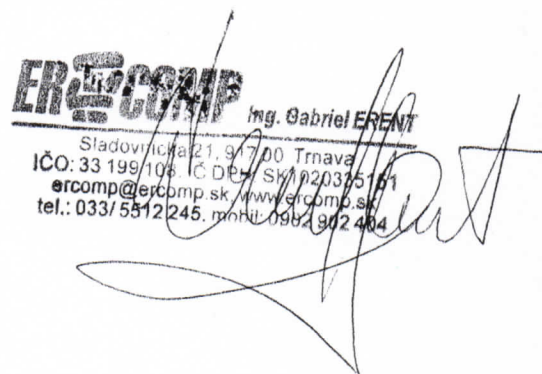 ERCOMP Ing. Gabriel ERENT
Sladovnícka 21, 917 00 Trnava
IČO: 33 199 108, Č DPH: SK1020335151
ercomp@ercomp.sk, www.ercomp.sk
tel.: 033/ 5512 245, mobil: 0902 902 404